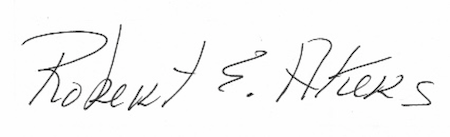 Robert E. Akers